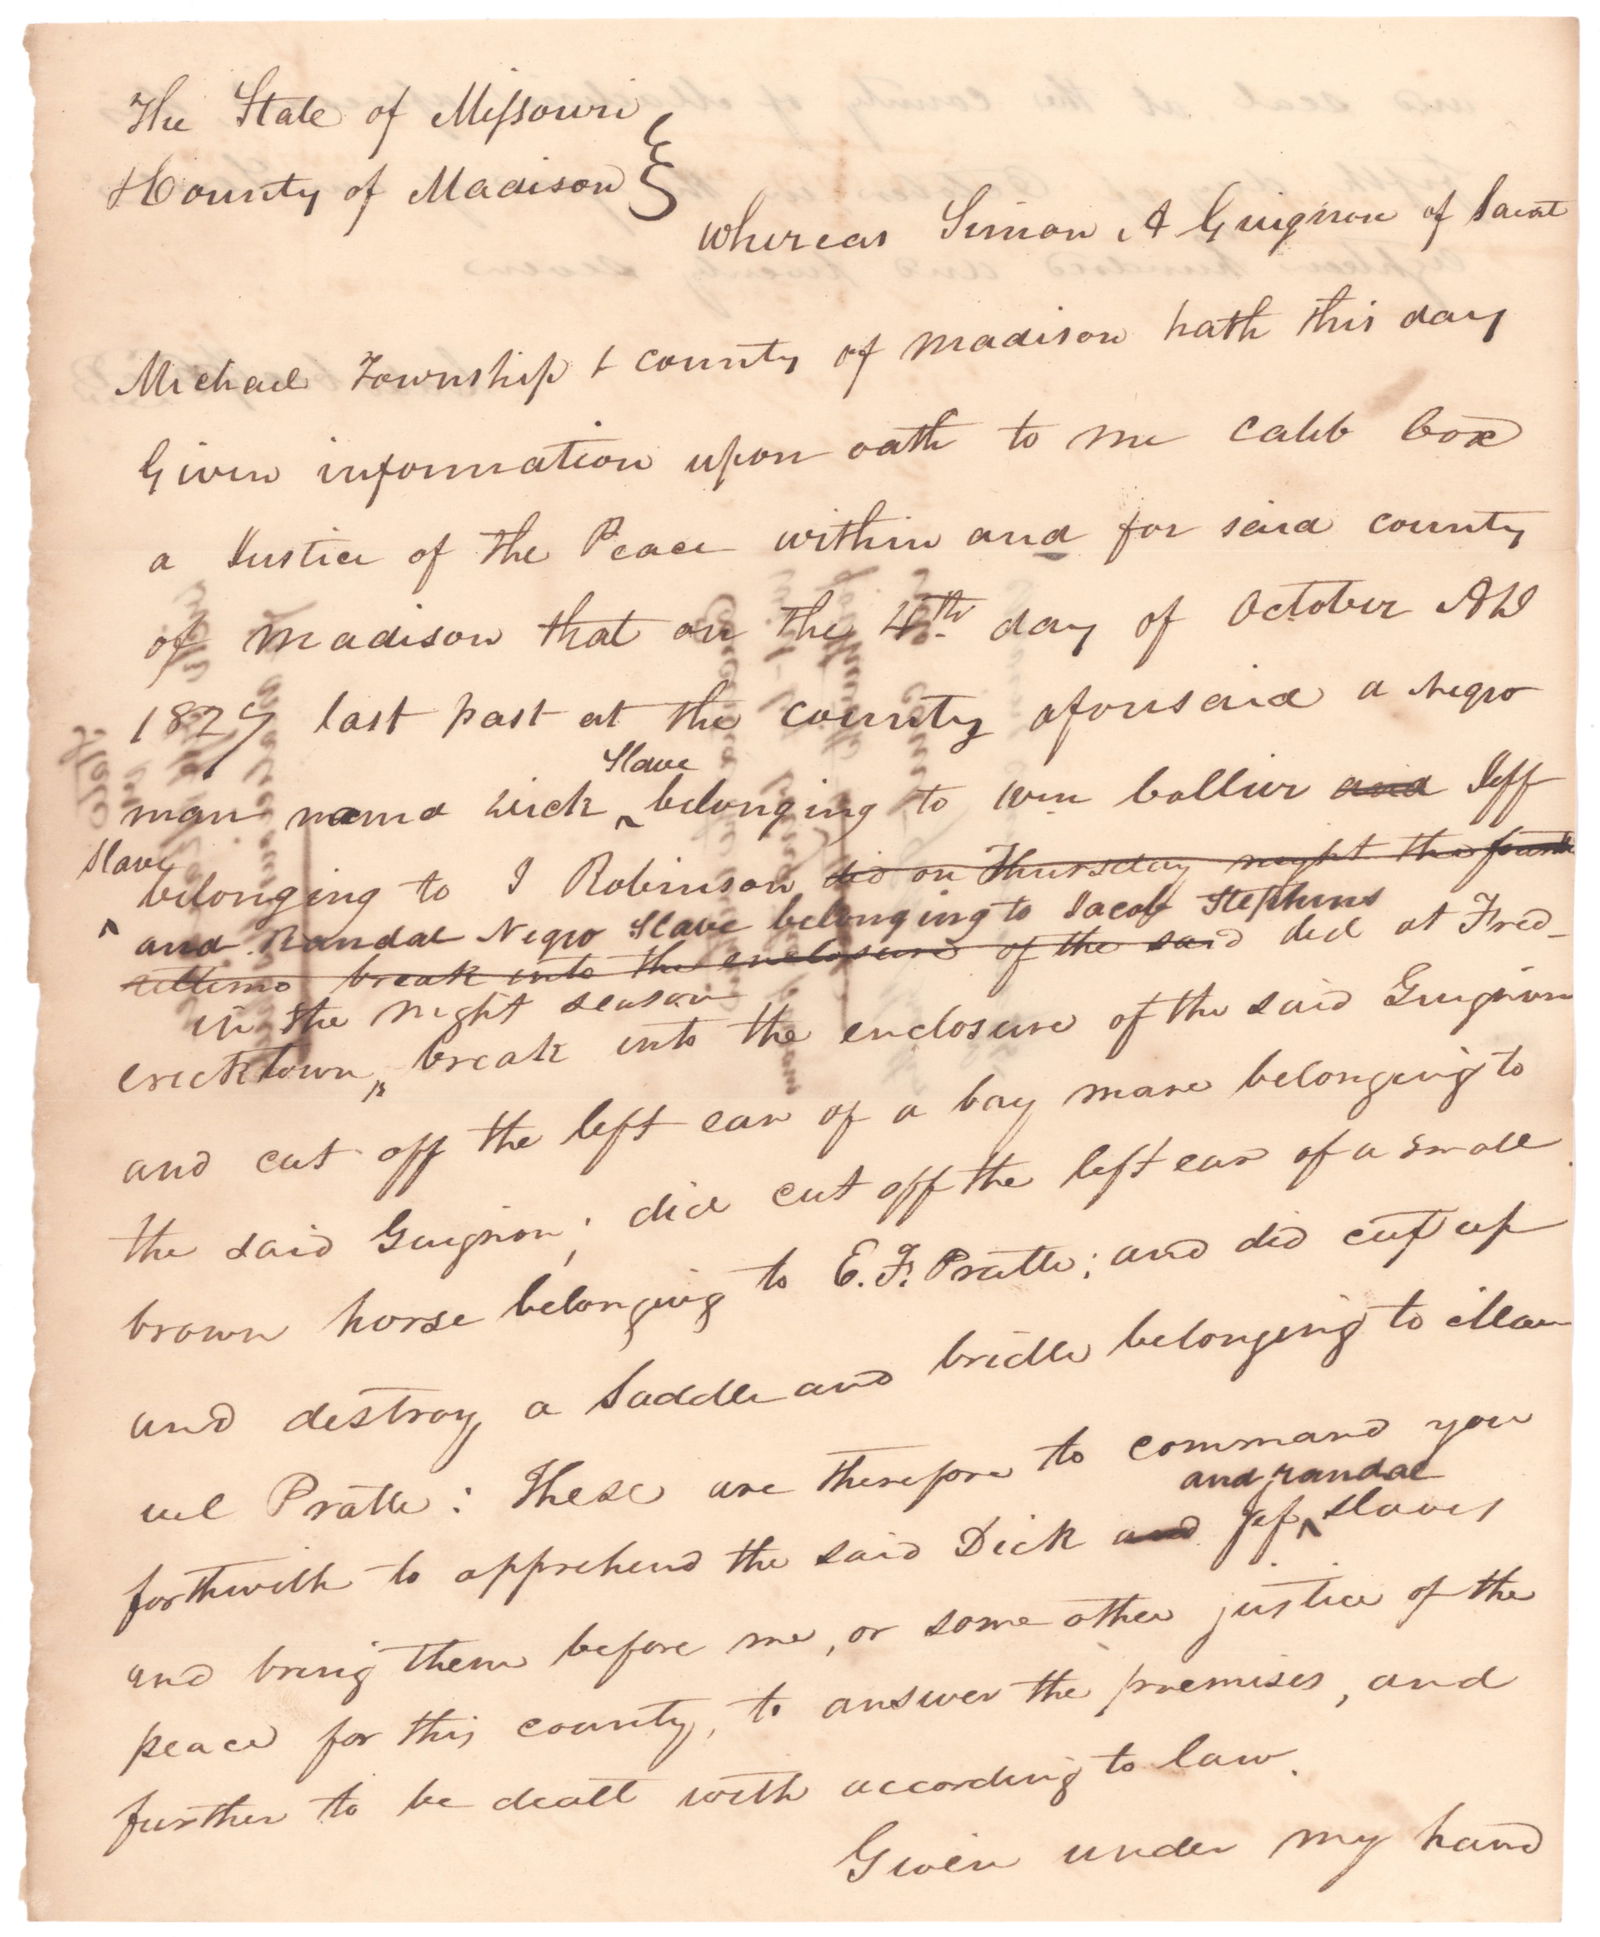 The State of Missouri
County of Madison
Whereas Simon A Guignon of Saint
Michael Township & county of madison hath this day
Given information upon oath to me Caleb Cox
a Justice of the Peace within and for said county
of Madison that on the 4th day of October AD
1827 last past at the county aforesaid a negro
Slave
man named Dick ‸ belonging to Wm Collier and Jeff
Slave
‸ belonging to J Robinson did on Thursday night the fourth
and Randal Negro Slave belonging to Jacob Stephens
ultimo break into the enclosure of the said did at Fred-
in the night season
ericktown ‸ break into the enclosure of the said Guignon
and cut off the left ear of a bay mare belonging to
the said Guignon; did cut off the left ear of a small
brown horse belonging to E. F. Pratte; and did cut up
and destroy a Saddle and bridle belonging to Man
uel Pratte: These are therefore to command you
and randal
forthwith to apprehend the said Dick and Jef ‸ slaves
and bring them before me, or some other justice of the
peace for this county, to answer the premises, and
further to be dealt with according to law.
Given under my hand